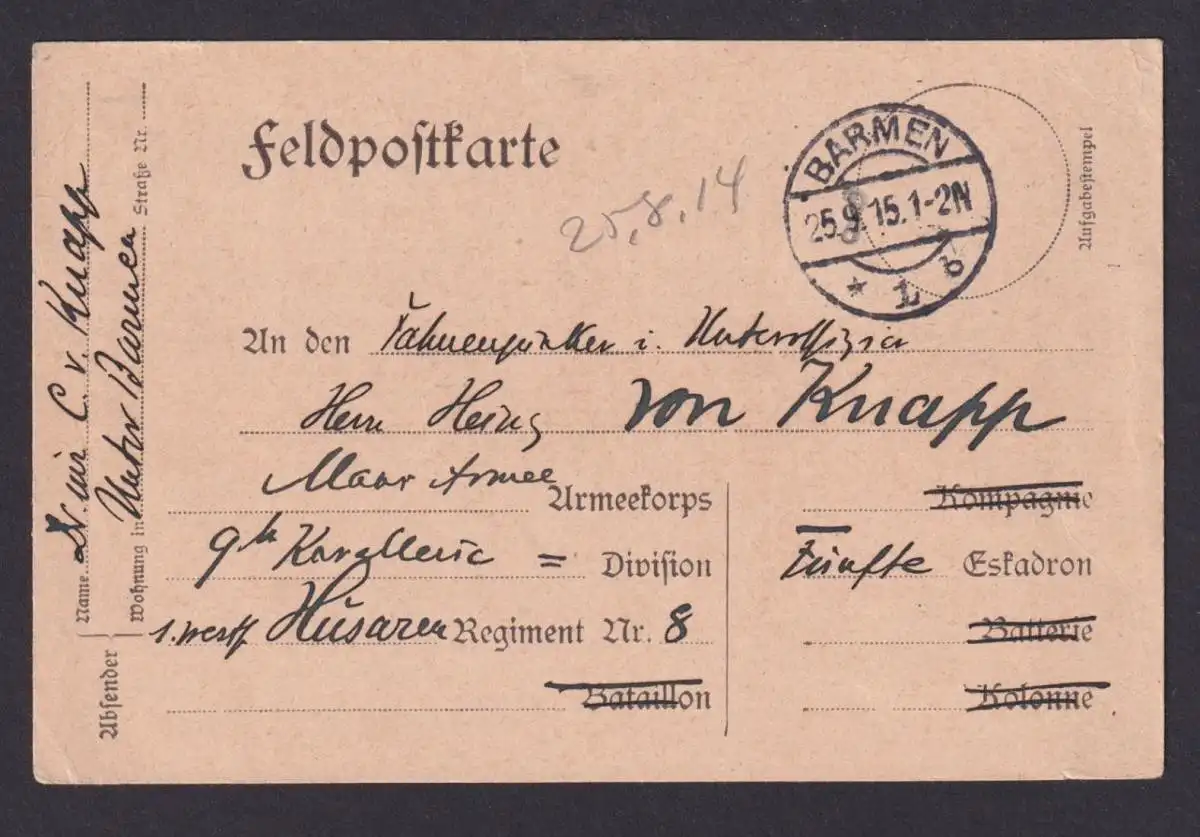 Feldpostkarte
25.8.14
BARMEN
25.9.15.1-2N
* 1 b
Aufgabestempel
An den Fahnenjunker i. Unteroffizier
Herrn Heinz von Knapp
Maas Armee
Armeekorps
9te Kavallerie = Division
1. westf Husaren Regiment Nr. 8
Bataillon
Kompagnie
Fünfte Eskadron
Batterie
Kolonne
Absender
Name C. v. Knapp
Wohnung in Unter Barmen Straße Nr.